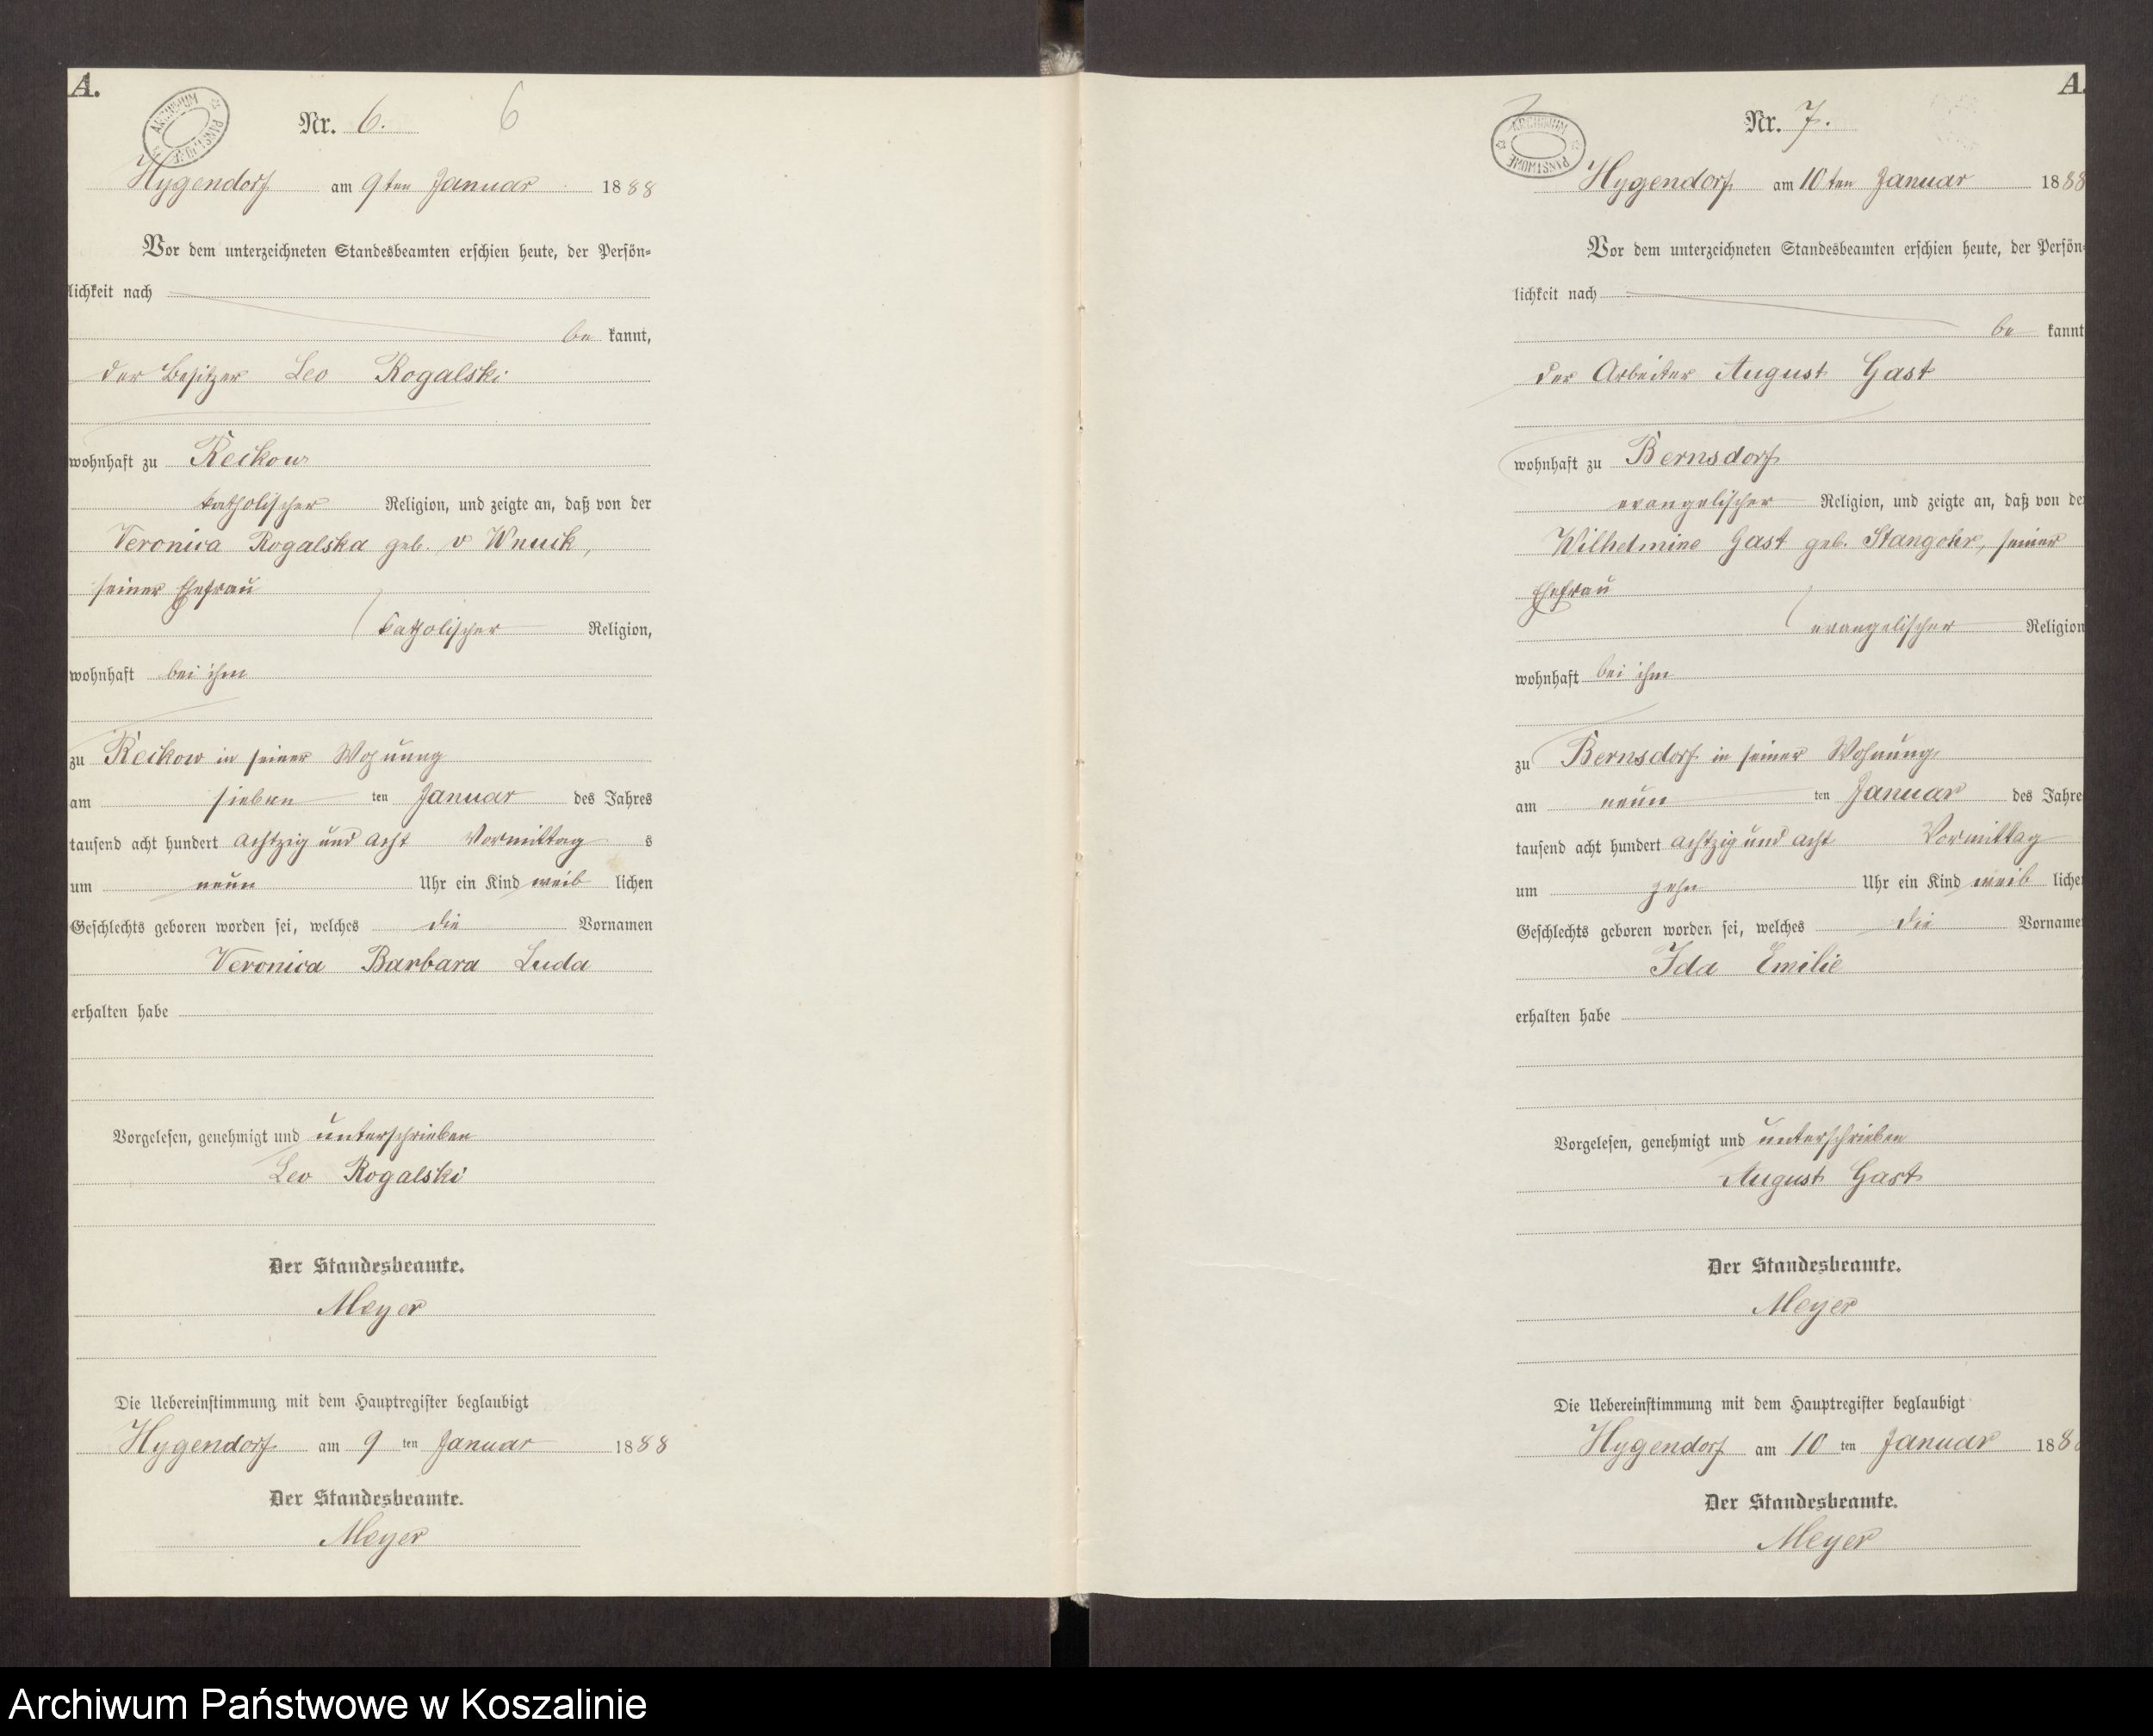 A.
ARCHIWUM PAŃSTWOWE
Nr. 6. 6
Hygendorf am 9ten Januar 1888
Vor dem unterzeichneten Standesbeamten erschien heute, der Persön-
lichkeit nach
be kannt,
der Besitzer Leo Rogalski
wohnhaft zu Reckow
katholischer Religion, und zeigte an, daß von der
Veronica Rogalska geb. v Wnuck,
seiner Ehefrau
katholischer Religion,
wohnhaft bei ihm
zu Reckow in seiner Wohnung
am sieben ten Januar des Jahres
tausend acht hundert achtzig und acht Vormittag s
um neun Uhr ein Kind weib lichen
Geschlechts geboren worden sei, welches die Vornamen
Veronica Barbara Luda
erhalten habe
Vorgelesen, genehmigt und unterschrieben
Leo Rogalski
Der Standesbeamte.
Meyer
Die Uebereinstimmung mit dem Hauptregister beglaubigt
Hygendorf am 9 ten Januar 1888
Der Standesbeamte.
Meyer
A.
7
ARCHIWUM PAŃSTWOWE
Nr. 7.
Hygendorf am 10ten Januar 1888
Vor dem unterzeichneten Standesbeamten erschien heute, der Persön-
lichkeit nach
be kannt
der Arbeiter August Gast
wohnhaft zu Bernsdorf
evangelischer Religion, und zeigte an, daß von de
Wilhelmine Gast geb. Stangohr, seiner
Ehefrau
evangelischer Religion
wohnhaft bei ihm
zu Bernsdorf in seiner Wohnung
am neun ten Januar des Jahre
tausend acht hundert achtzig und acht Vormittag
um zehn Uhr ein Kind weib liche
Geschlechts geboren worden sei, welches die Vorname
Ida Emilie
erhalten habe
Vorgelesen, genehmigt und unterschrieben
August Gast
Der Standesbeamte.
Meyer
Die Uebereinstimmung mit dem Hauptregister beglaubigt
Hygendorf am 10 ten Januar 188
Der Standesbeamte.
Meyer
Archiwum Państwowe w Koszalinie